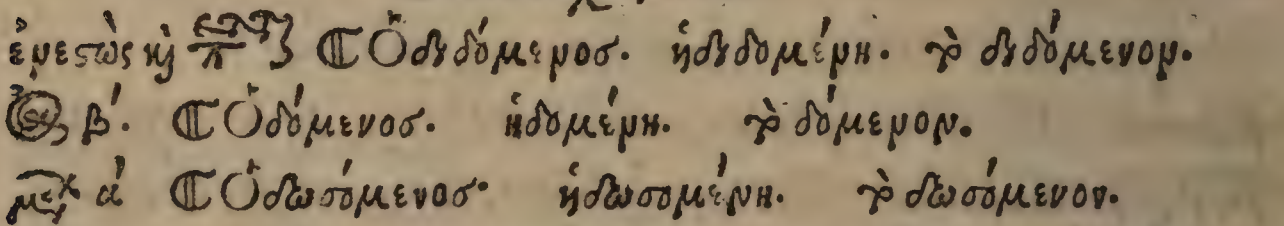 ἐνεστὼς καὶ π ὁ διδόμενος. ἡ διδομένη. τὸ διδόμενον.
β΄. ὁ δόμενος. ἡ δομένη. τὸ δόμενον.
μελ α΄ ὁ δωσόμενος· ἡ δωσομένη. τὸ δωσόμενον.